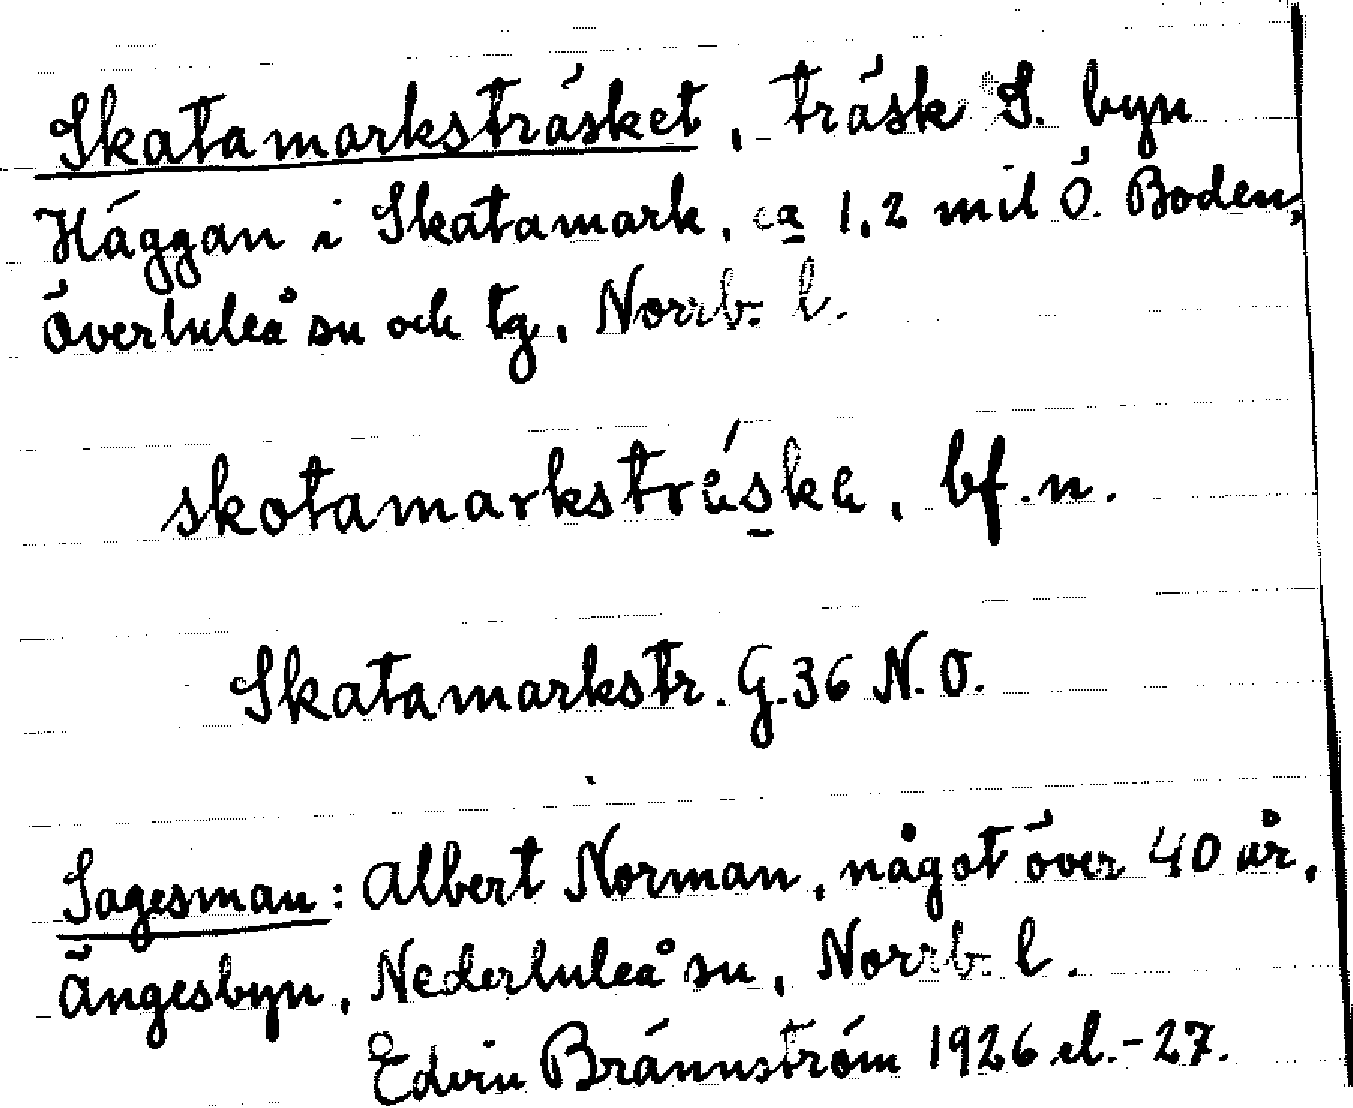 Skatamarksträsket, träsk S. byn
Häggan i Skatamark, ca 1,2 mil Ö. Boden,
Överluleå sn och tg, Norrb. l.
skatamarkstréske, bf. n.
Skatamarkstr. G. 36 N.O.
Sagesman: Albert Norman, något över 40 år,
Ängesbyn, Nederluleå sn, Norrb. l.
Edvin Brännström 1926 el. -27.